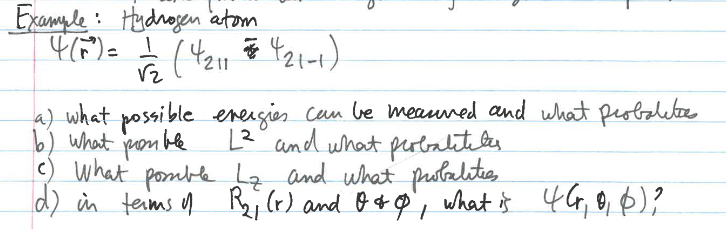 Example: Hydrogen atom
Ψ(r⃗) = 1/√2 (Ψ₂₁₁ Ψ₂₁₋₁)
a) what possible energies can be measured and what probabilities
b) what possible L² and what probabilities
c) What possible L_z and what probabilities
d) in terms of R₂₁(r) and θ & φ, what is Ψ(r, θ, φ)?